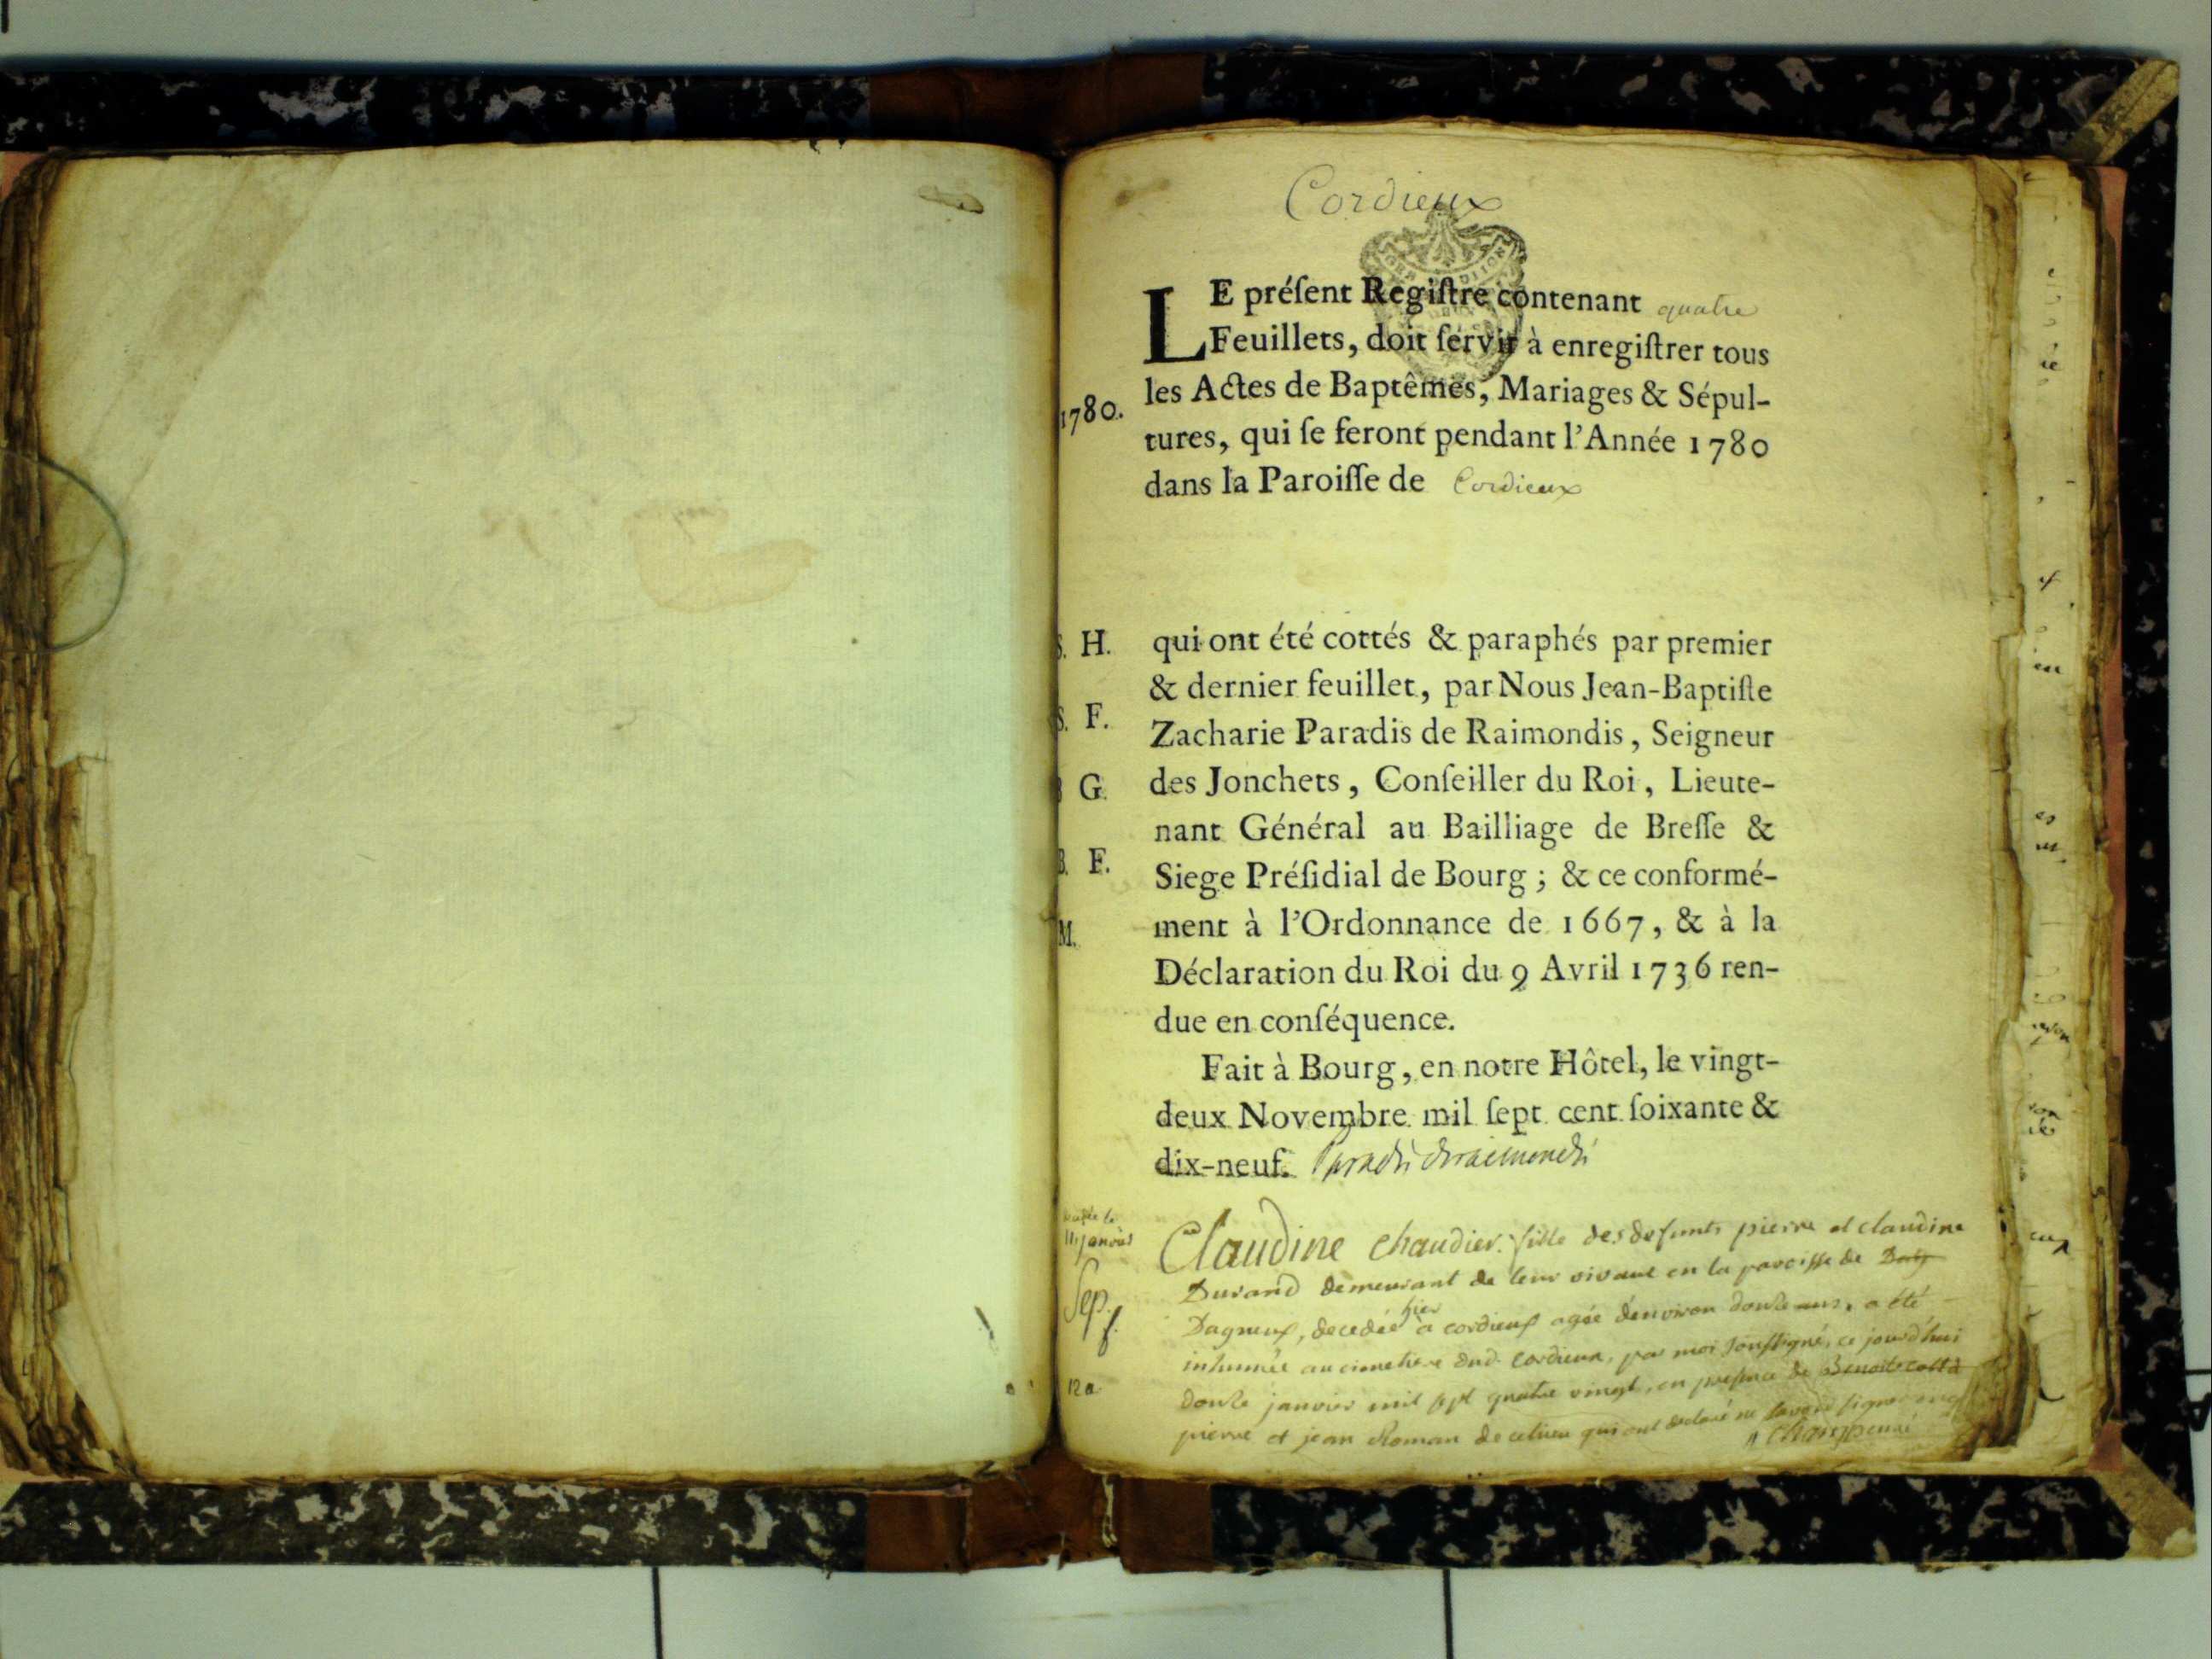 Cordieux
LE préſent Regiſtre contenant quatre
Feuillets, doit ſervir à enregiſtrer tous
les Actes de Baptêmes, Mariages & Sépul-
1780.
tures, qui ſe feront pendant l'Année 1780
dans la Paroiſſe de Cordieux
S. H.
qui ont été cottés & paraphés par premier
& dernier feuillet, par Nous Jean-Baptiſte
S. F.
Zacharie Paradis de Raimondis, Seigneur
G.
des Jonchets, Conſeiller du Roi, Lieute-
nant Général au Bailliage de Breſſe &
B. F.
Siege Préſidial de Bourg ; & ce conformé-
M.
ment à l'Ordonnance de 1667, & à la
Déclaration du Roi du 9 Avril 1736 ren-
due en conſéquence.
Fait à Bourg, en notre Hôtel, le vingt-
deux Novembre mil ſept cent ſoixante &
dix-neuf. Paradis de raimondis
11 janvier
Sep. f.
12 a
Claudine Chaudier. fille des defunts pierre et claudine
Durand demeurant de leur vivant en la paroisse de
Dagneux, decedée hier a cordieux agée d'environ douze ans, a été
inhumée au cimetiere dud. Cordieux, par moi soussigné, ce jourd'hui
douze janvier mil sept quatre vingt, en presence de Benoit
pierre et jean Roman de ce lieu qui ont declaré ne savoir signer